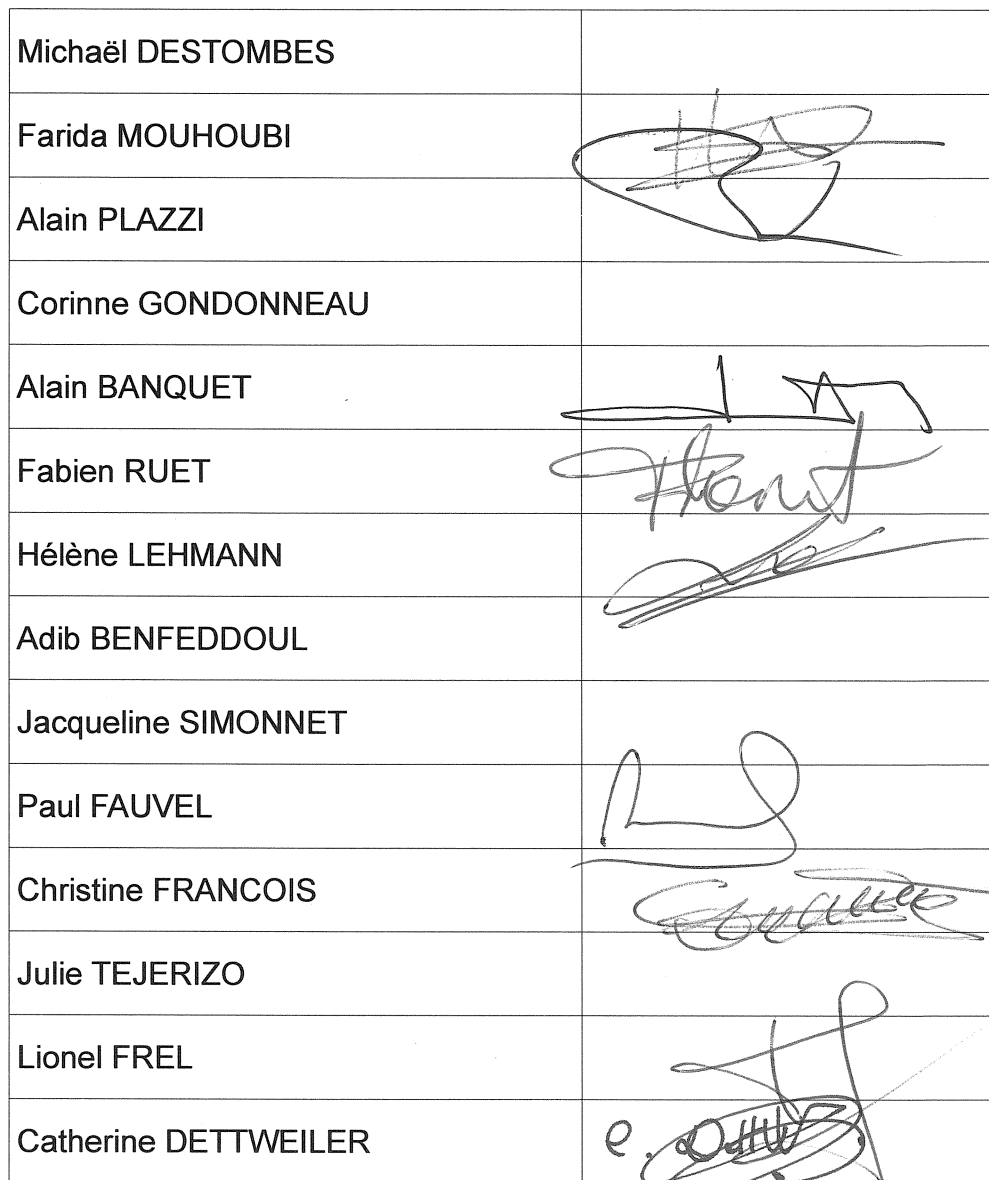 Michaël DESTOMBES
Farida MOUHOUBI
Alain PLAZZI
Corinne GONDONNEAU
Alain BANQUET
Fabien RUET
Hélène LEHMANN
Adib BENFEDDOUL
Jacqueline SIMONNET
Paul FAUVEL
Christine FRANCOIS
Julie TEJERIZO
Lionel FREL
Catherine DETTWEILER